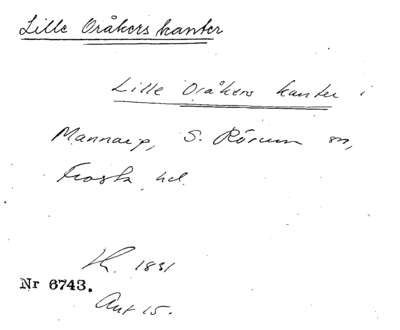 Lille Oråkers kanter
Lille Oråkers kanter i
Mannarp, S. Rörum sn,
Frosta hd.
Lk. 1831
Nr 6743.
Akt 15.